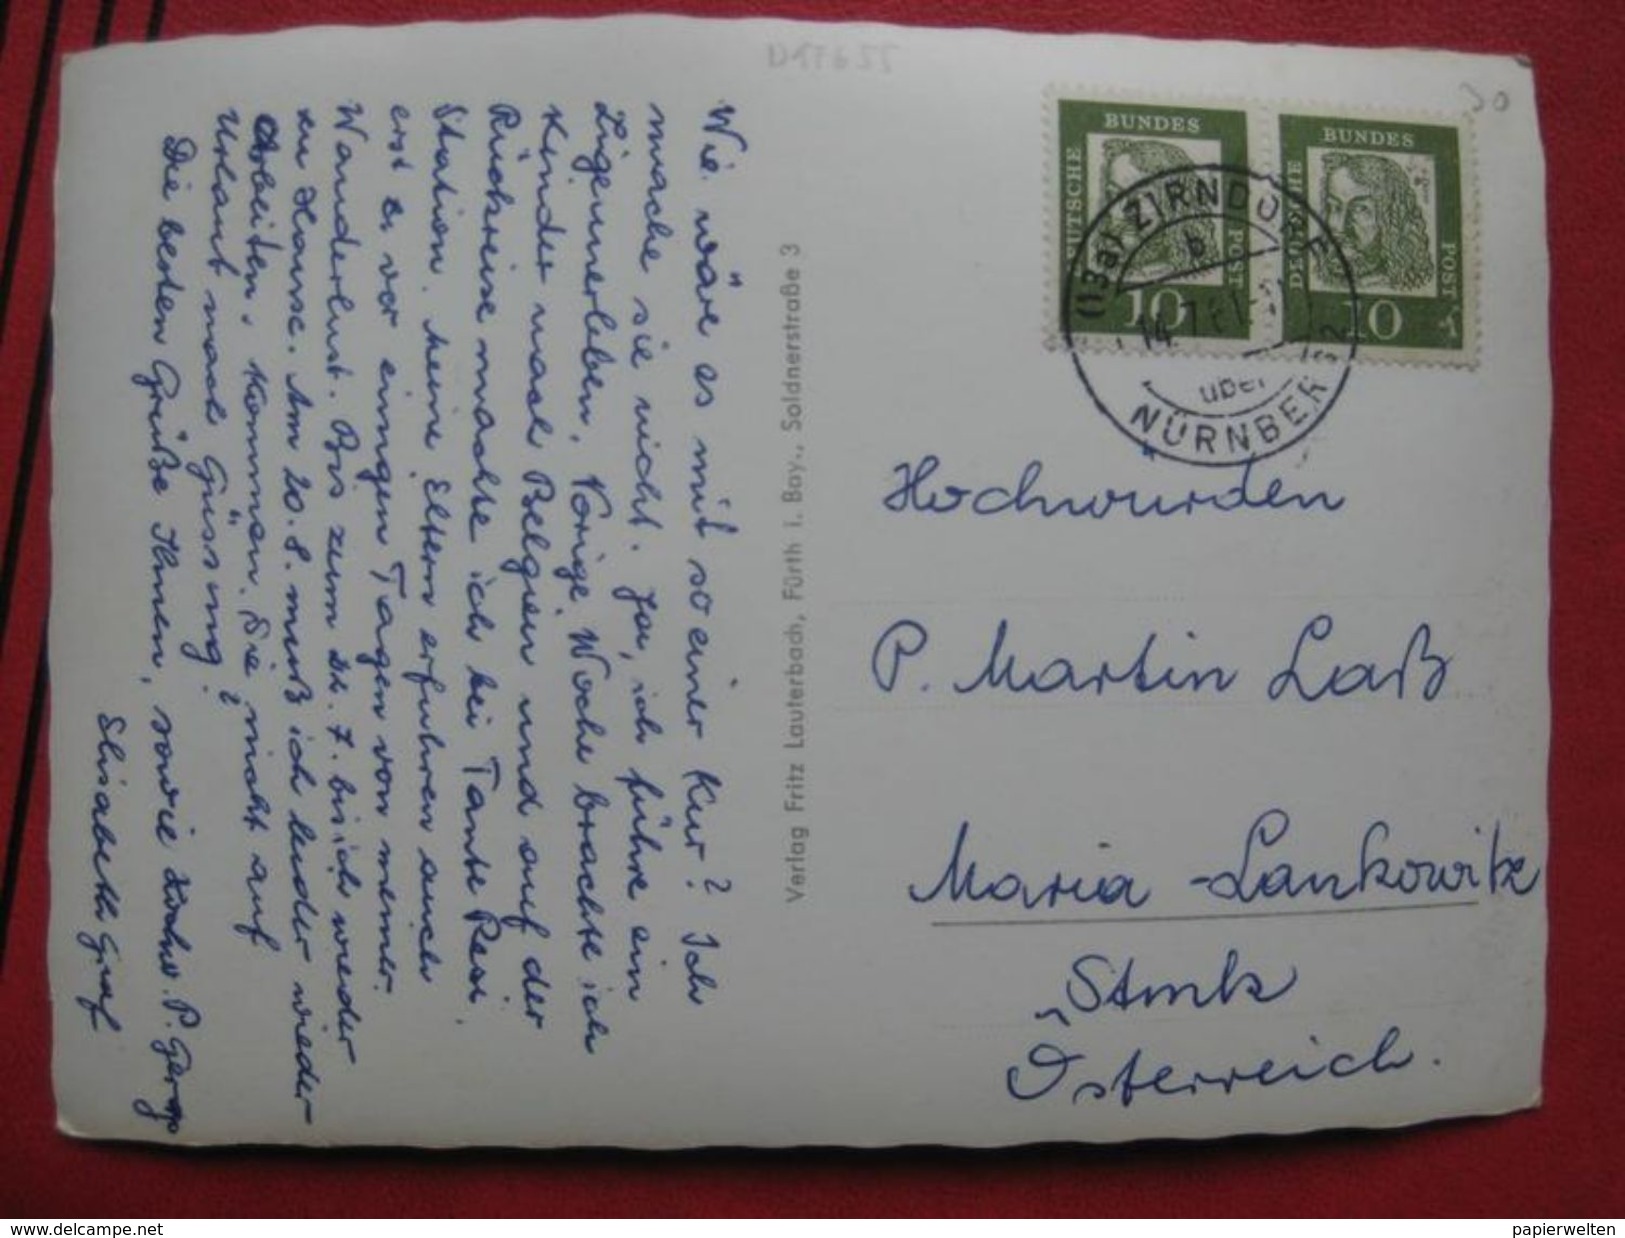 Wie wäre es mit so einer Kur? Ich
mache sie nicht. Ja, ich führe ein
Zigeunerleben. Vorige Woche brachte ich
Kinder nach Belgien und auf der
Rückreise machte ich bei Tante Resi
Station. Meine Eltern erfuhren auch
erst vor einigen Tagen von meiner
Wanderlust. Bis zum 24. 7. bin ich wieder
zu Hause. Am 20. 8. muß ich leider wieder
arbeiten. Kommen Sie nicht auf
Urlaub nach Güssing?
Die besten Grüße Ihnen, sowie P. Gereg
Elisabeth Graf
Verlag Fritz Lauterbach, Fürth i. Bay., Soldnerstraße 3
30
BUNDES
DEUTSCHE
POST
10
BUNDES
DEUTSCHE
POST
10
(13a) ZIRNDORF
b
14. 7. 61
über
NÜRNBERG 2
Hochwürden
P. Martin Laß
Maria-Lankowitz
Stmk
Österreich.
www.delcampe.net
papierwelten